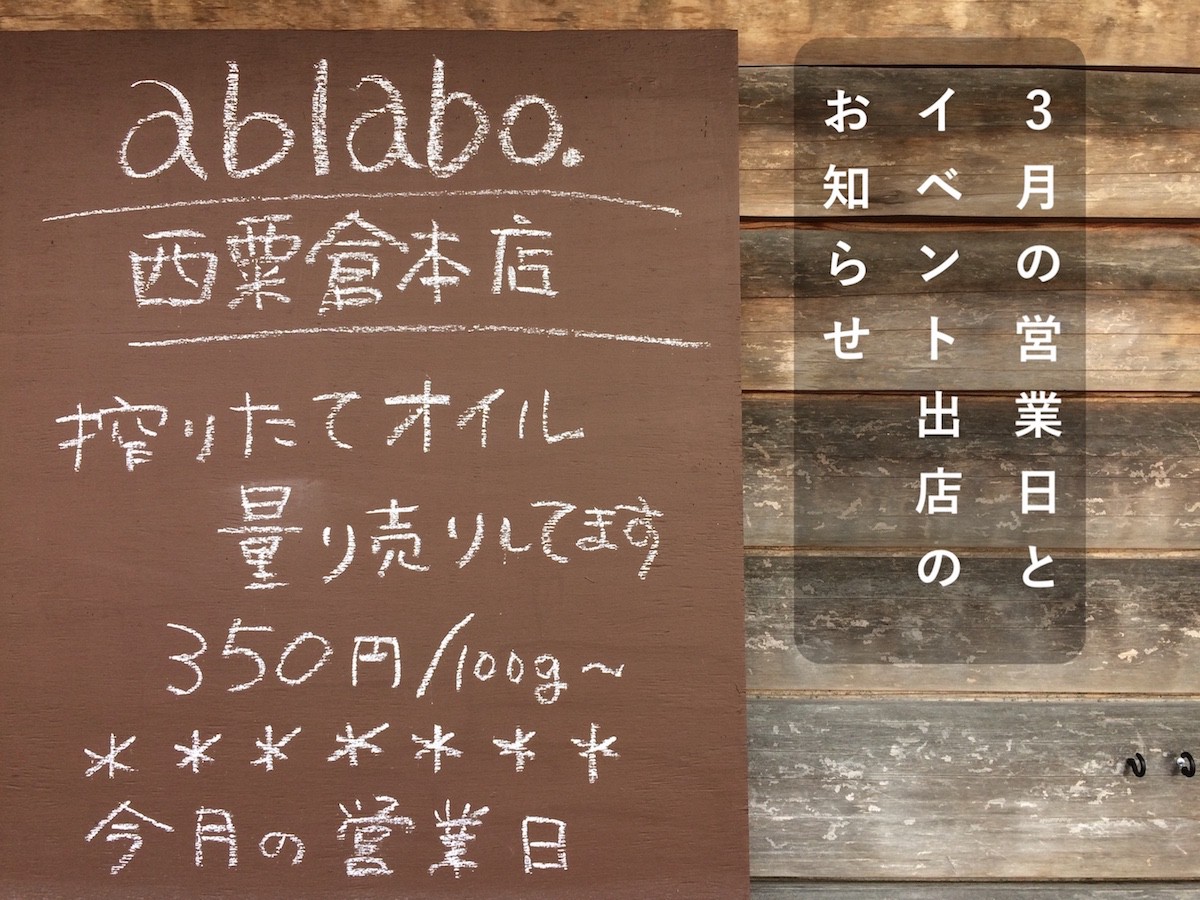 ablabo.
西粟倉本店
搾りたてオイル
量り売りしてます
350円/100g～
＊＊＊＊＊＊＊
今月の営業日
3月の営業日と
イベント出店の
お知らせ